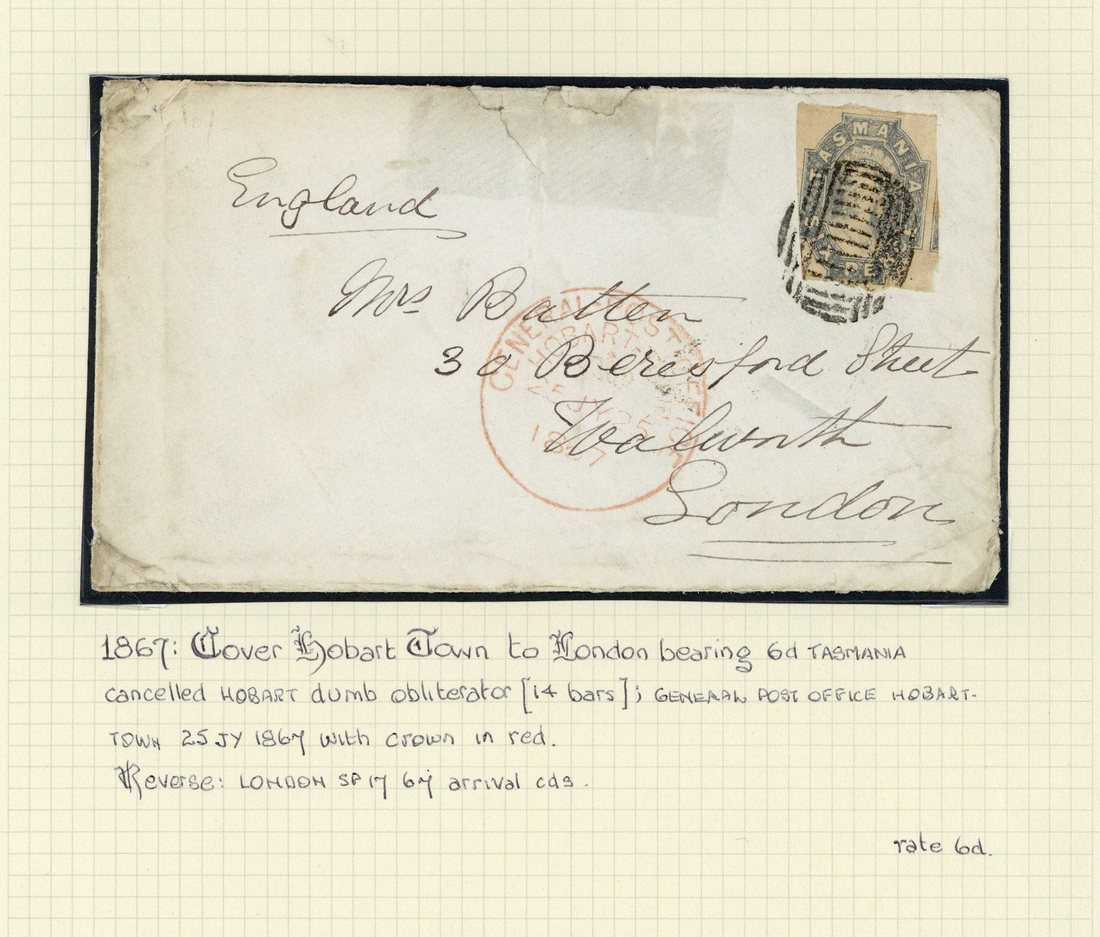 TASMANIA
England
Mrs Batten
30 Beresford Street
Walworth
London
GENERAL POST OFFICE
HOBART
25 JY 25
1867
1867: Cover Hobart Town to London bearing 6d TASMANIA
cancelled HOBART dumb obliterator [14 bars]; GENERAL POST OFFICE HOBART-
TOWN 25 JY 1867 with crown in red.
Reverse: LONDON SP 17 67 arrival cds.
rate 6d.